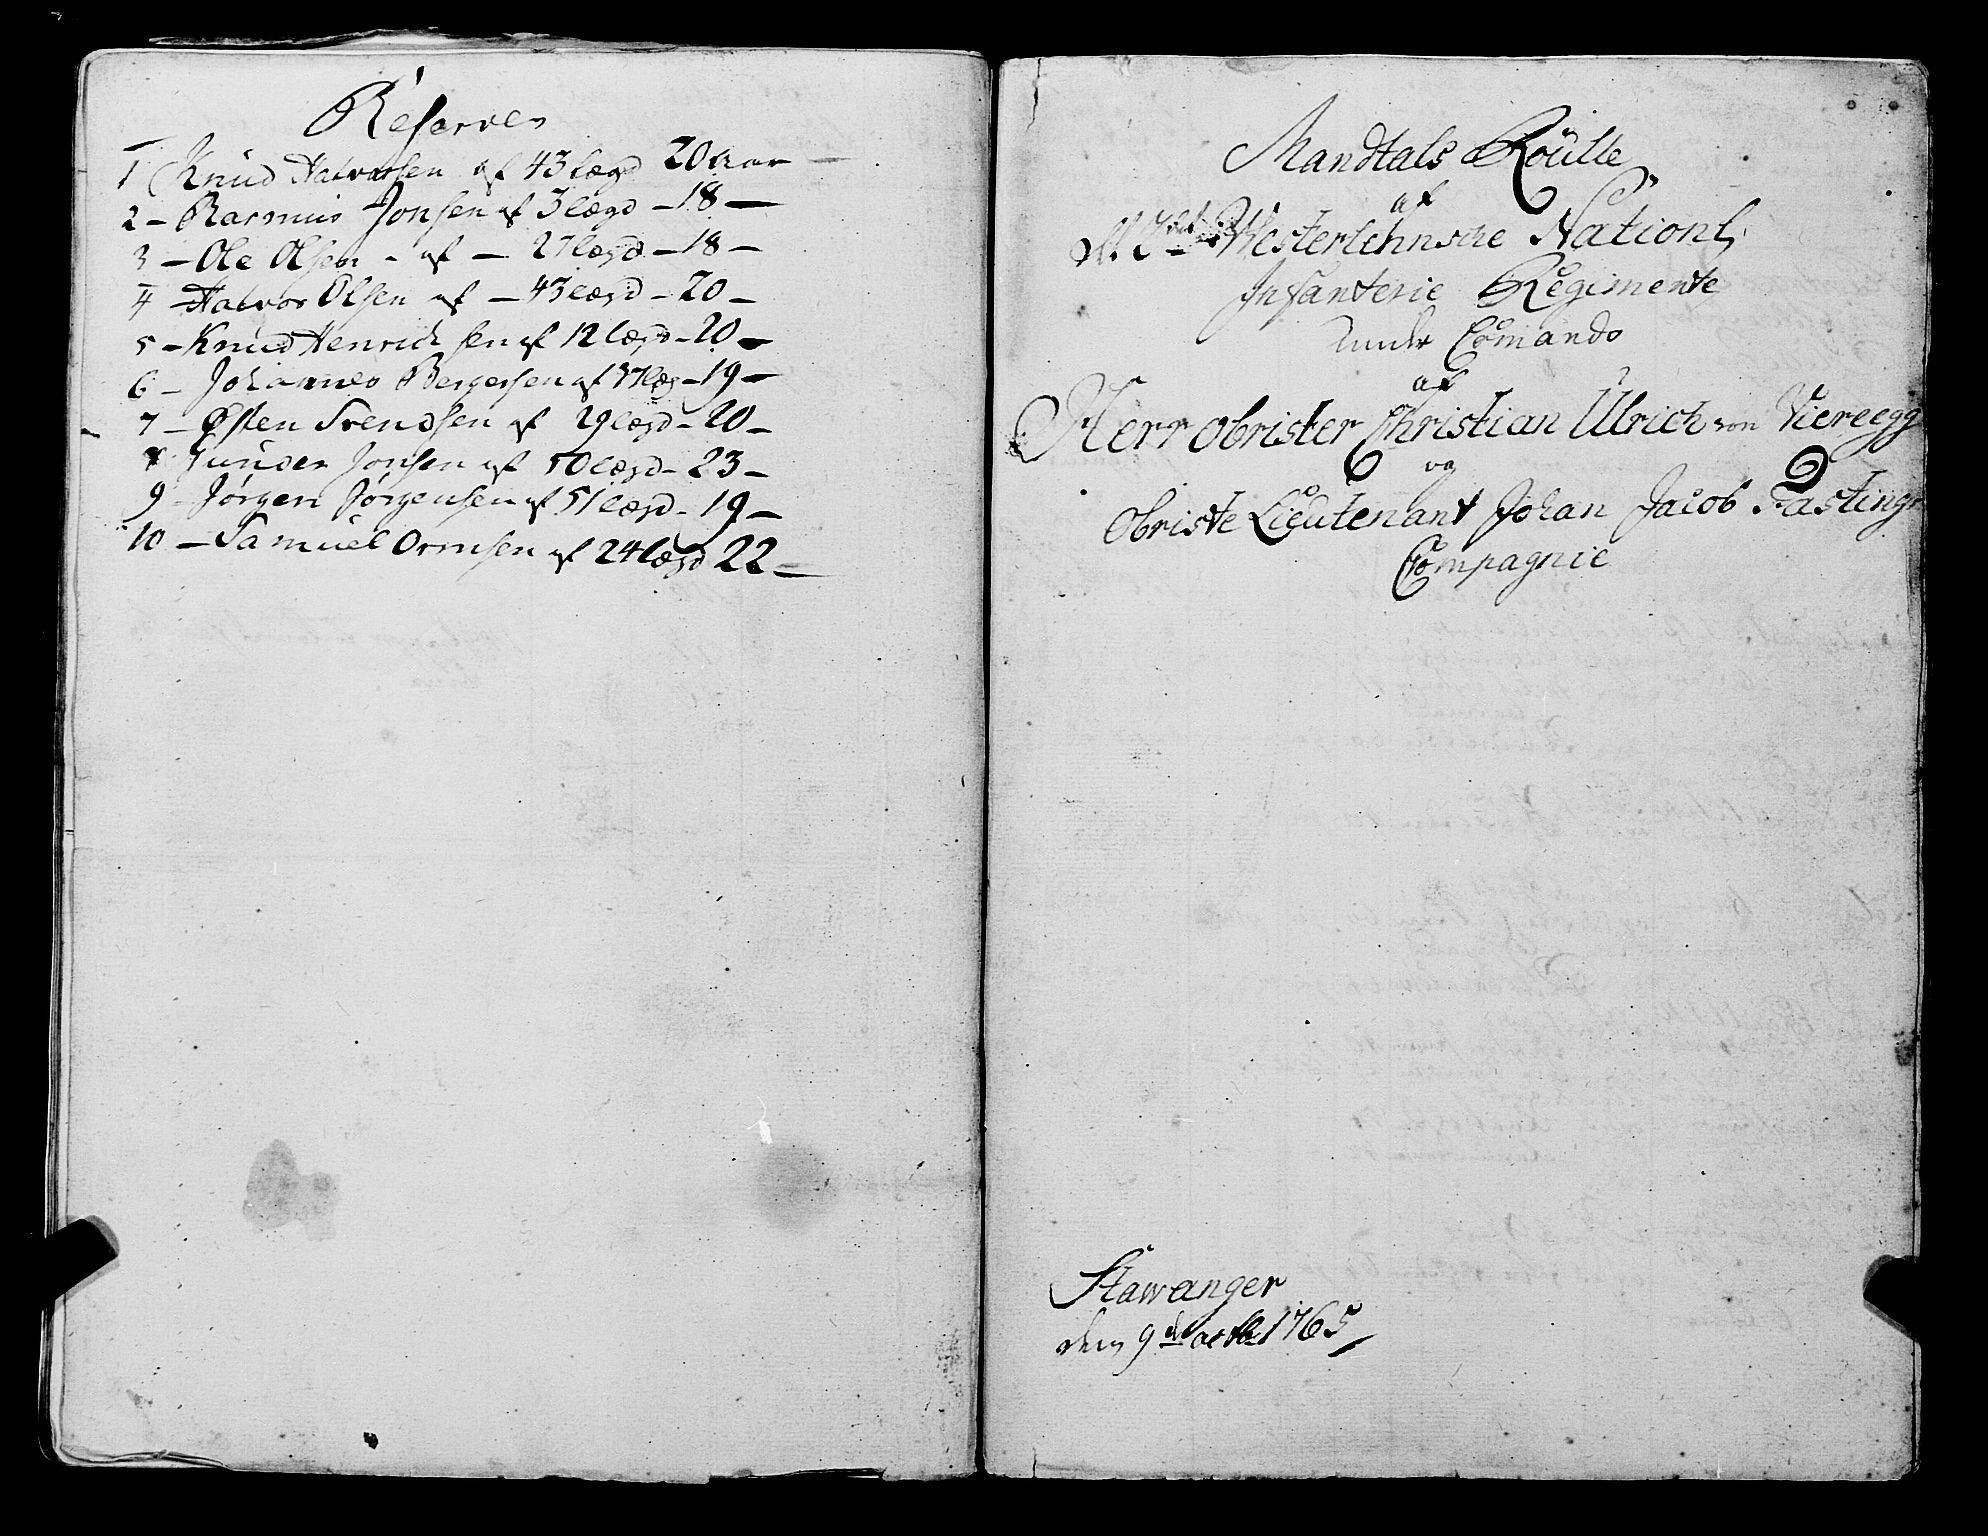 Reserver
1 Knud Halvorsen af 43 lægd 20 aar
2 – Rasmus Jonsen af 3 lægd – 18 –
3 – Ole Olsen – af – 27 lægd – 18 –
4 – Halvor Olsen af – 43 lægd – 20 –
5 – Knud Henrichsen af 12 lægd – 20 –
6 – Johannes Bergersen af 37 læg – 19 –
7 – Østen Svendsen af 29 lægd – 20 –
8 Gunder Jonsen af 50 lægd – 23 –
9 – Jørgen Jørgensen af 51 lægd – 19 –
10 – Samuel Ormsen af 24 lægd 22 –
Mandtals Roülle
af
Westerlehnske Nationl
Infanterie Regimente
under Comando
af
Herr obrister Christian Ulrich von Vieregg
og
Obriste Lieutenant Johan Jacob Fastings
Compagnie
Stawanger
den 9de octbr 1765